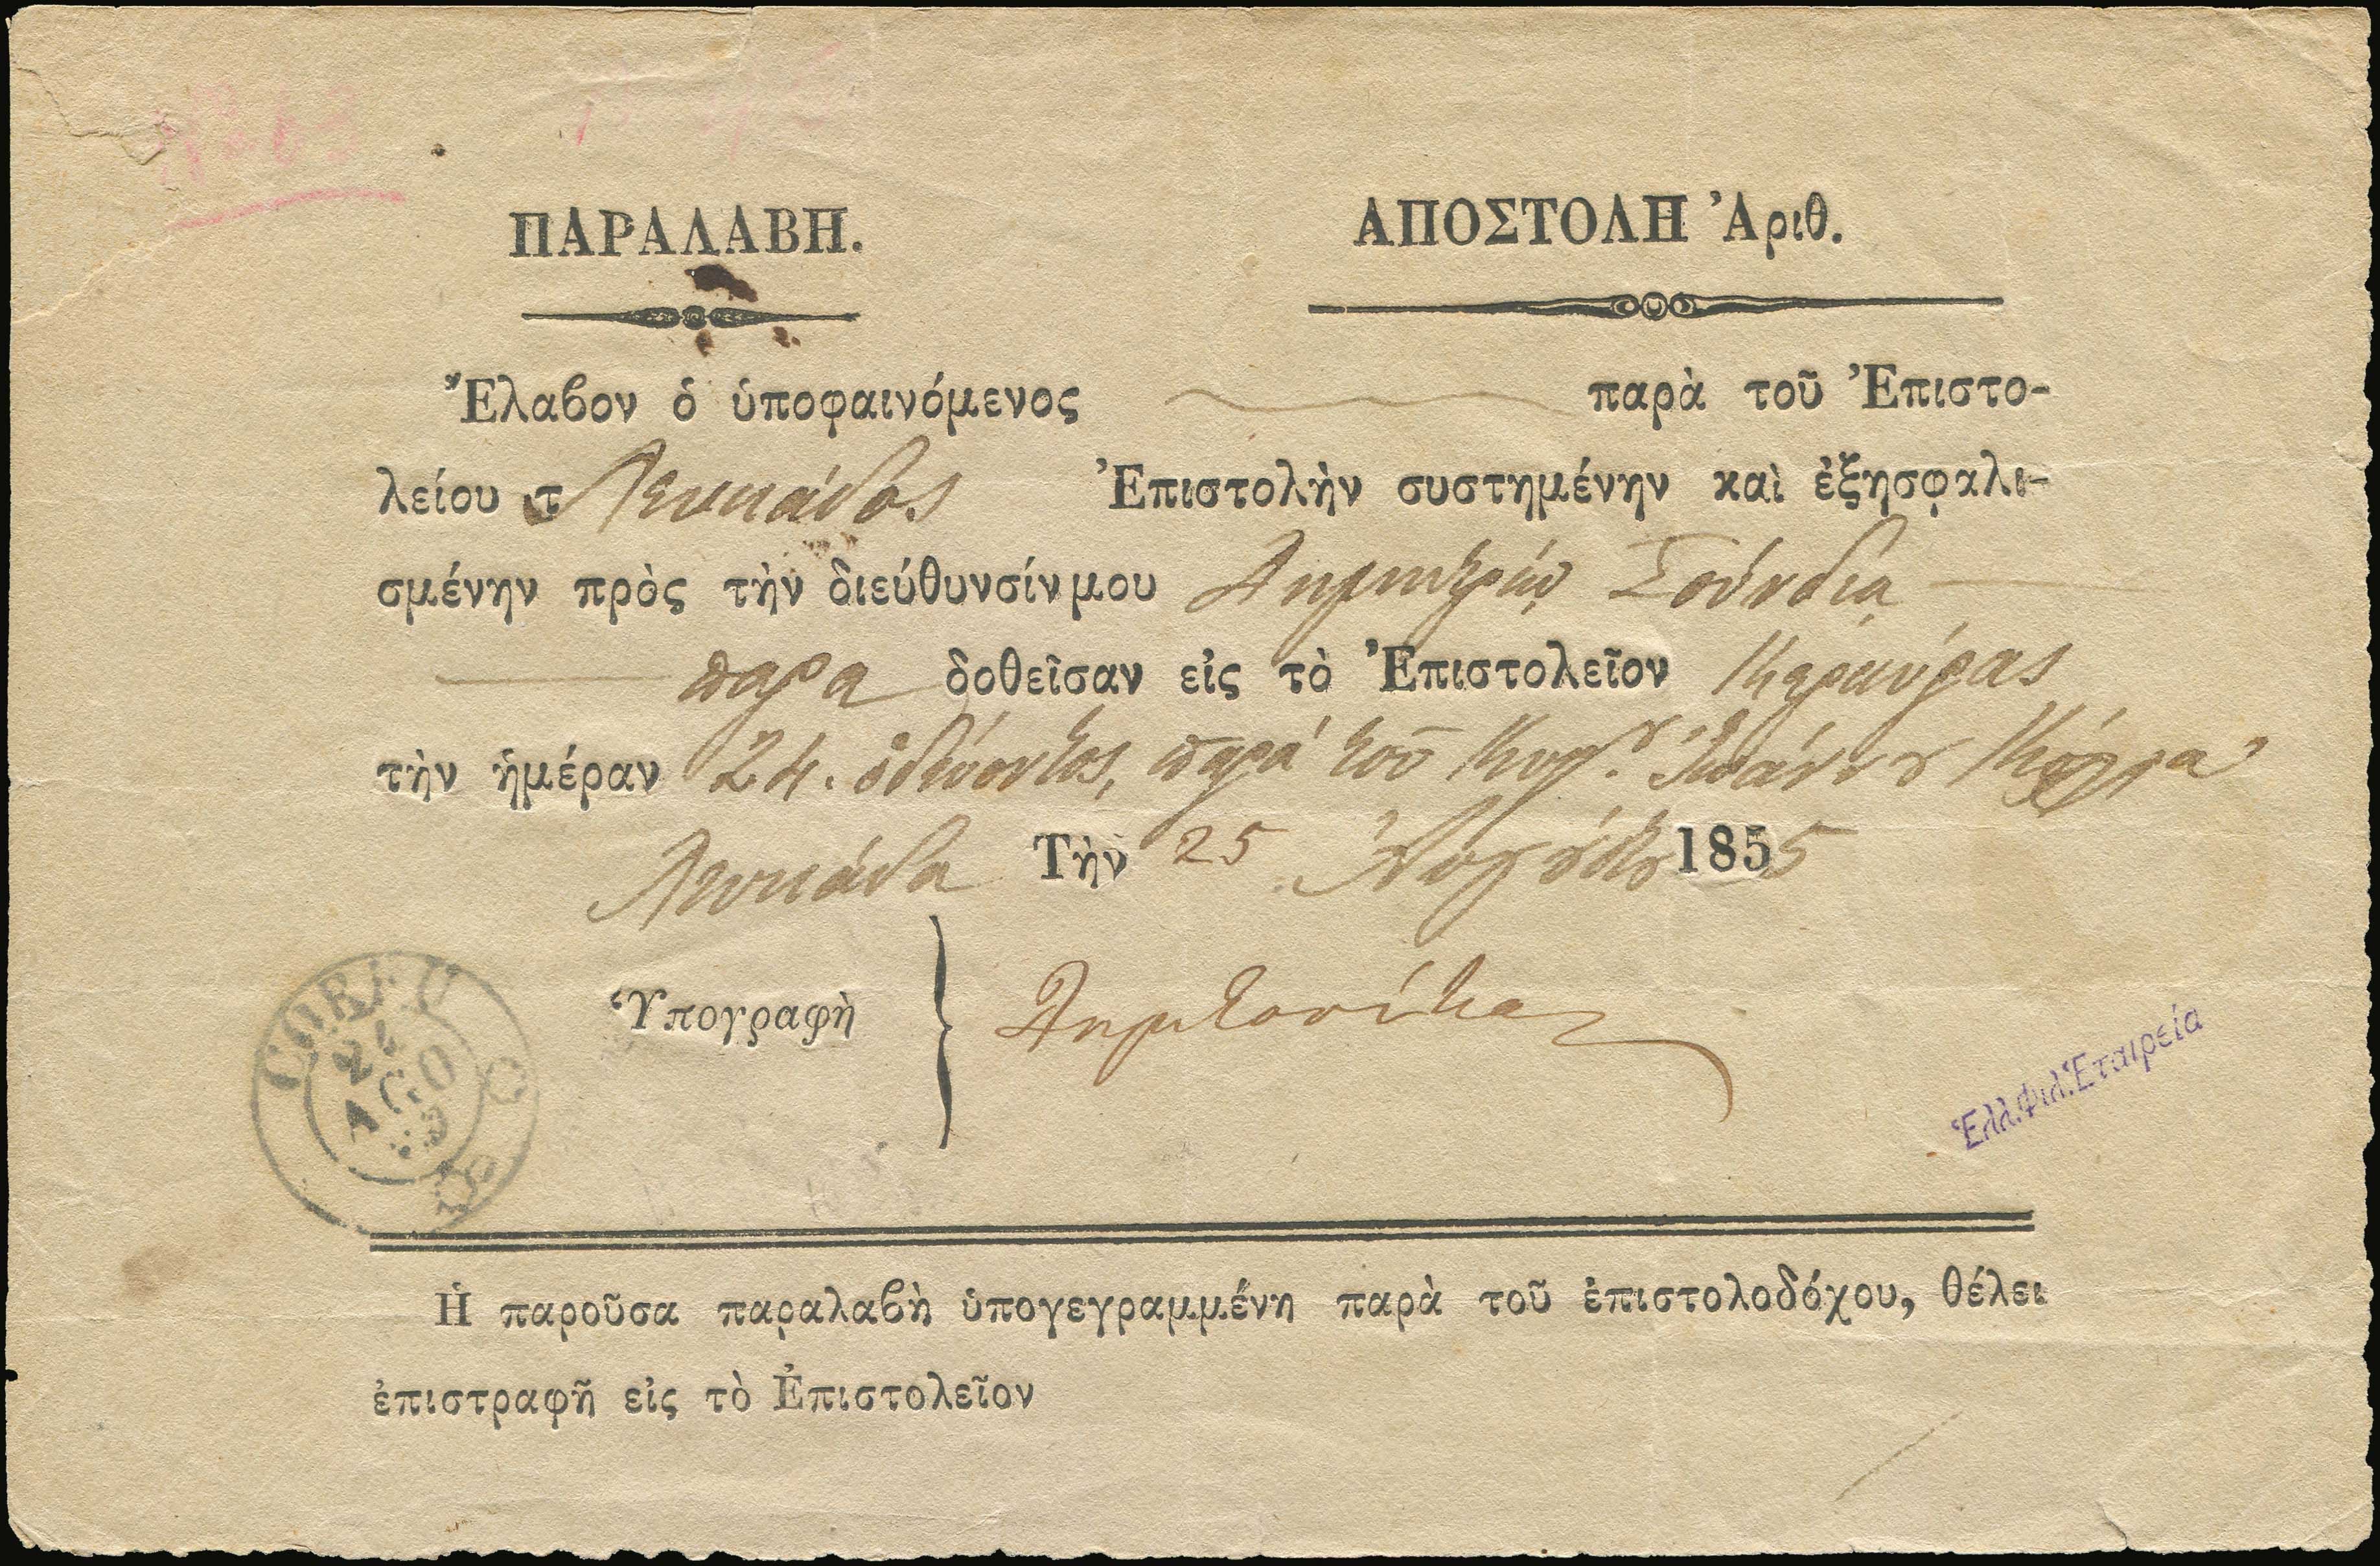 ΠΑΡΑΛΑΒΗ.
ΑΠΟΣΤΟΛΗ Ἀριθ.
Ἔλαβον ὁ ὑποφαινόμενος παρὰ τοῦ Ἐπιστο-
λείου τ Λευκάδος Ἐπιστολὴν συστημένην καὶ ἐξησφαλι-
σμένην πρὸς τὴν διεύθυνσίν μου Δημητρίῳ
παρα δοθεῖσαν εἰς τὸ Ἐπιστολεῖον Κερκύρας
τὴν ἡμέραν 24. ὁδεύοντος, παρὰ τοῦ Κυρ. Ἰωάννου
Λευκάδα Τὴν 25 Αὐγούστου 1855
Ὑπογραφὴ
CORFU
AGO
Ἑλλ.Φιλ.Ἑταιρεία
Ἡ παροῦσα παραλαβὴ ὑπογεγραμμένη παρὰ τοῦ ἐπιστολοδόχου, θέλει
ἐπιστραφῆ εἰς τὸ Ἐπιστολεῖον